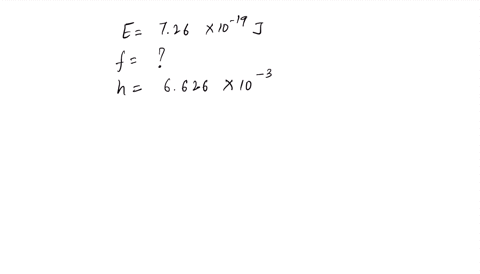 E= 7.26 ×10⁻¹⁹ J
f= ?
h= 6.626 ×10⁻³